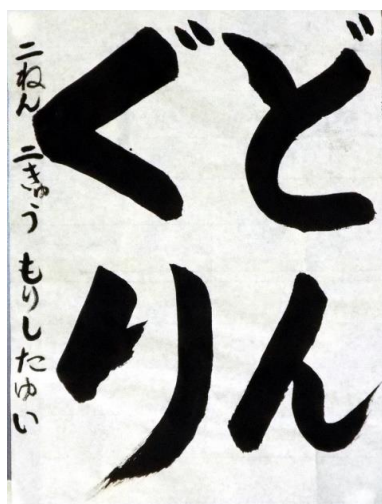 どん
ぐり
二ねん 二きゅう もりしたゆい